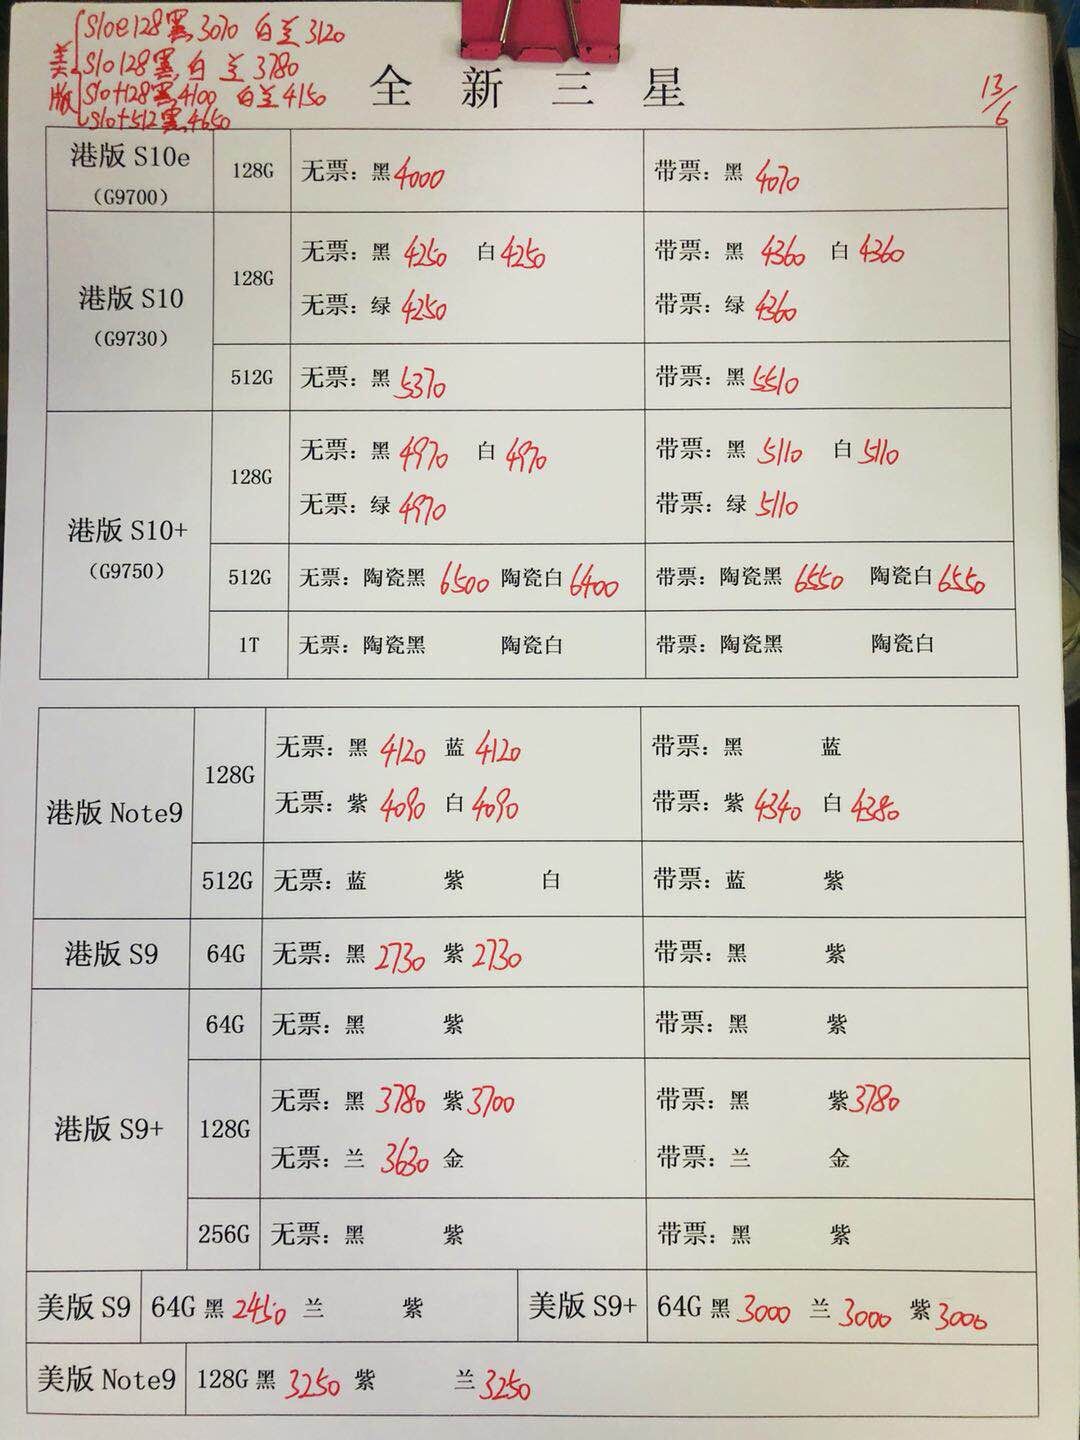 美版
S10e 128黑 3070 白兰 3120
S10 128黑 白 兰 3780
S10+128黑 4100 白兰 4150
S10+512黑 4650
全新三星
13/6
港版 S10e
（G9700）
128G
无票：黑 4000
带票：黑 4070
港版 S10
（G9730）
128G
无票：黑 4250 白 4250
带票：黑 4360 白 4360
无票：绿 4250
带票：绿 4360
512G
无票：黑 5370
带票：黑 5510
港版 S10+
（G9750）
128G
无票：黑 4970 白 4970
带票：黑 5110 白 5110
无票：绿 4970
带票：绿 5110
512G
无票：陶瓷黑 6500 陶瓷白 6400
带票：陶瓷黑 6550 陶瓷白 6550
1T
无票：陶瓷黑 陶瓷白
带票：陶瓷黑 陶瓷白
港版 Note9
128G
无票：黑 4120 蓝 4120
带票：黑 蓝
无票：紫 4090 白 4090
带票：紫 4340 白 4380
512G
无票：蓝 紫 白
带票：蓝 紫
港版 S9
64G
无票：黑 2730 紫 2730
带票：黑 紫
港版 S9+
64G
无票：黑 紫
带票：黑 紫
128G
无票：黑 3780 紫 3700
带票：黑 紫 3780
无票：兰 3630 金
带票：兰 金
256G
无票：黑 紫
带票：黑 紫
美版 S9
64G 黑 2450 兰 紫
美版 S9+
64G 黑 3000 兰 3000 紫 3000
美版 Note9
128G 黑 3250 紫 兰 3250